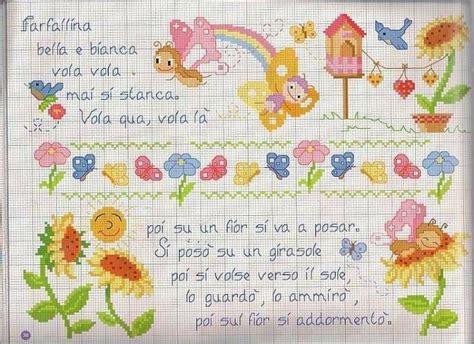 Farfallina
bella e bianca
vola vola
mai si stanca.
Vola qua, vola là
poi su un fior si va a posar.
Si posò su un girasole
poi si volse verso il sole,
lo guardò, lo ammirò,
poi sul fior si addormentò.